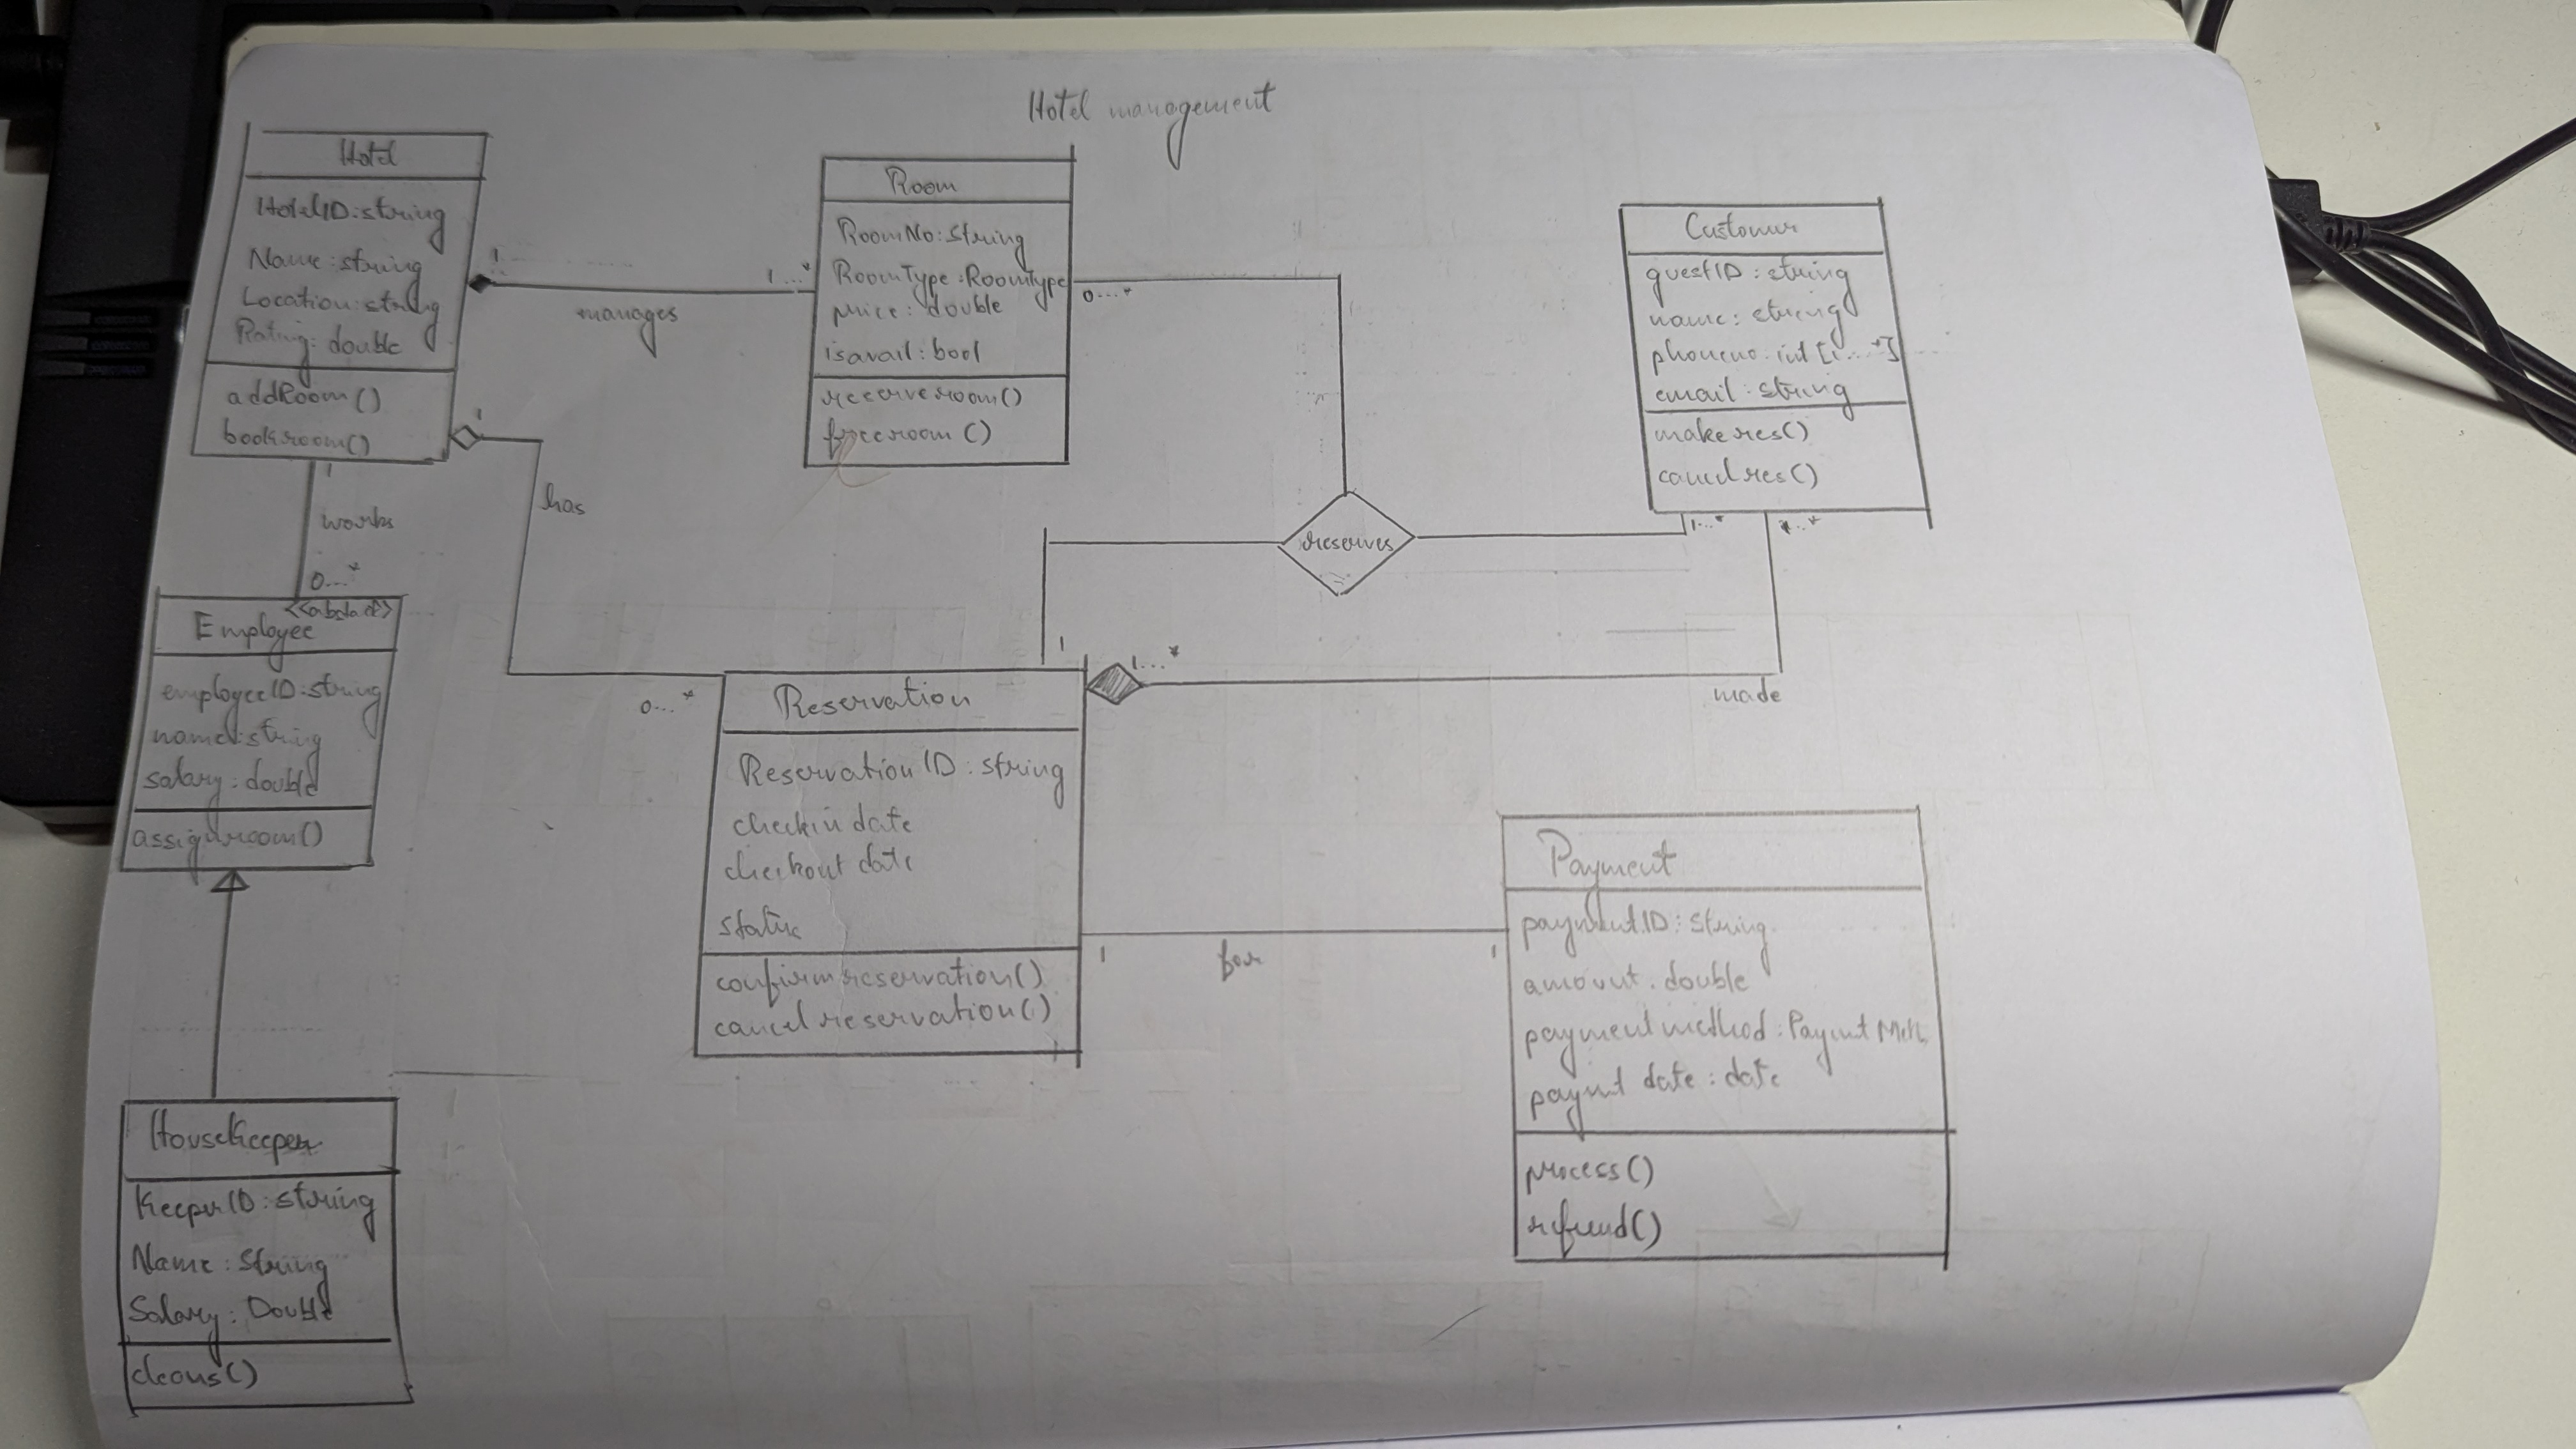 Hotel management
Hotel
HotelID:string
Name:string
Location:string
Rating:double
addRoom()
bookroom()
1
manages
1...*
Room
RoomNo:string
RoomType:RoomType
price:double
isavail:bool
reserveroom()
freeroom()
0...*
Customer
guestID:string
name:string
phoneno:int[1...*]
email:string
makeres()
cancelres()
1...*
reserves
1
1
has
0...*
1
works
0...*
<<abstract>>
Employee
employeeID:string
name:string
salary:double
assignroom()
1...*
made
Reservation
ReservationID:string
checkin date
checkout date
confirmreservation()
cancelreservation()
1
for
1
Payment
paymentID:string
amount.double
paymentmethod:
date:date
process()
refund()
HouseKeeper
KeeperID:string
Name:String
Salary:Double
cleans()